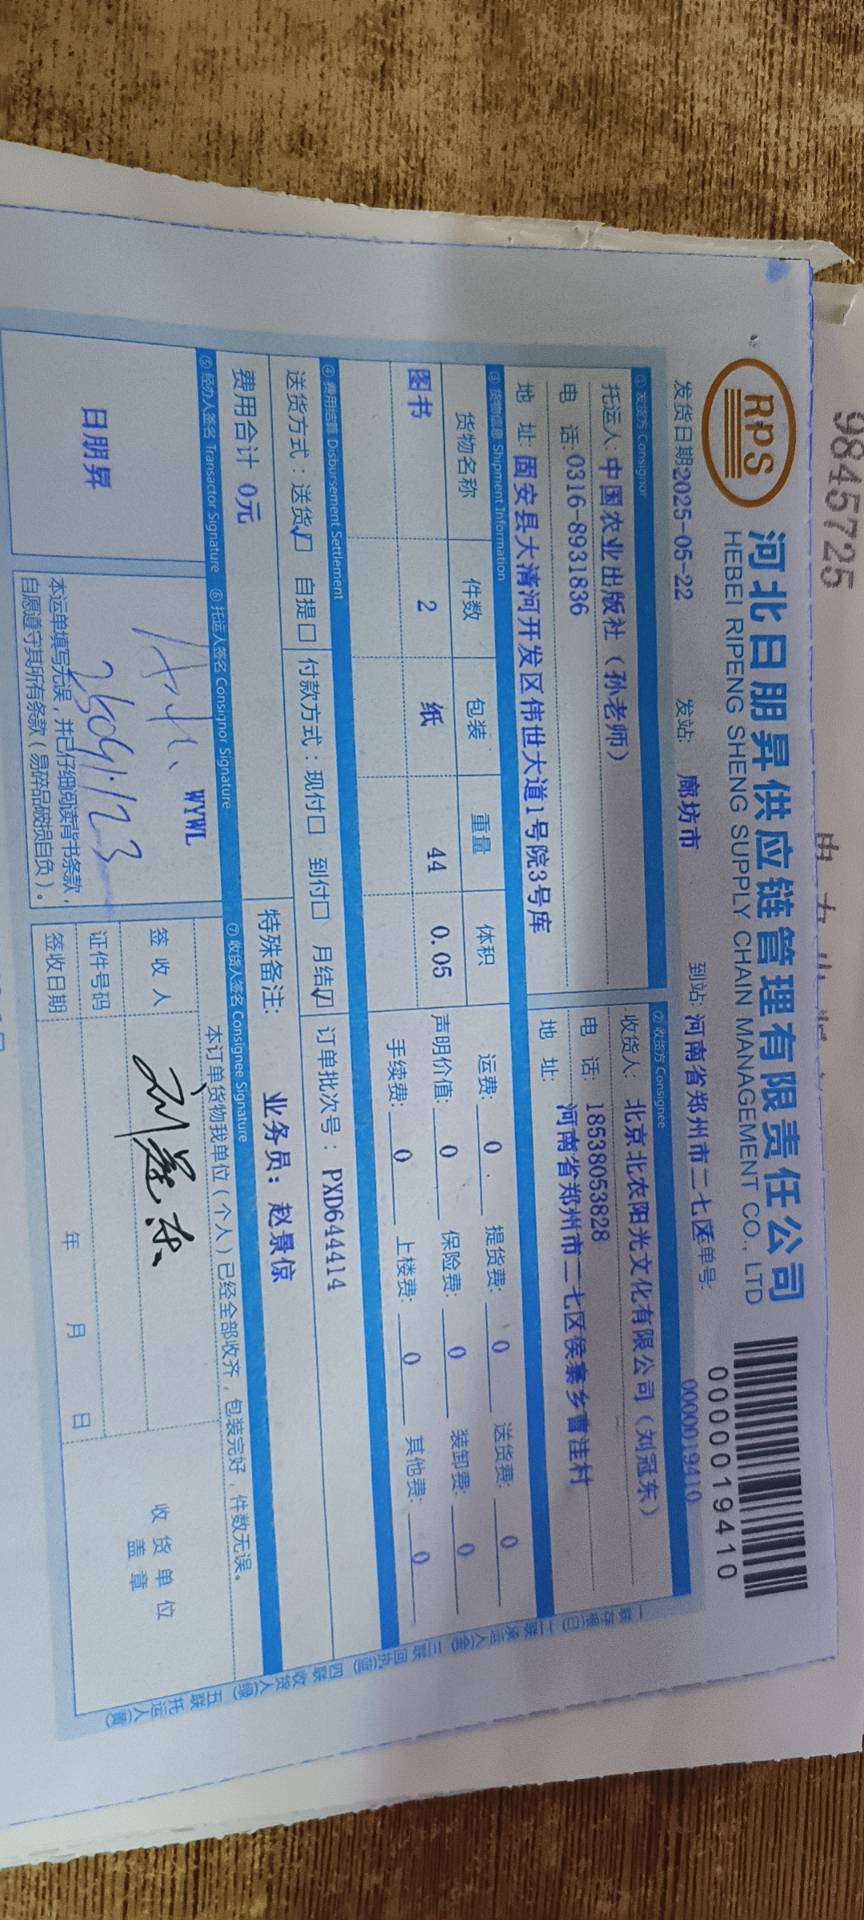 9845725
RPS
河北日朋昇供应链管理有限责任公司
HEBEI RIPENG SHENG SUPPLY CHAIN MANAGEMENT CO., LTD
0000019410
发货日期2025-05-22 发站: 廊坊市 到站: 河南省郑州市二七区单号: 0000019410
① 发货方 Consignor ② 收货方 Consignee
托运人: 中国农业出版社（孙老师） 收货人: 北京北农阳光文化有限公司（刘冠东）
电 话: 0316-8931836 电 话: 18538053828
地 址: 固安县大清河开发区伟世大道1号院3号库 地 址: 河南省郑州市二七区侯寨乡曹洼村
③ 货物信息 Shipment Information
货物名称 件数 包装 重量 体积 运费: 0 提货费: 0 送货费: 0
图书 2 纸 44 0.05 声明价值: 0 保险费: 0 装卸费: 0
手续费: 0 上楼费: 0 其他费: 0
④ 费用结算 Disbursement Settlement
送货方式：送货☑ 自提□ 付款方式：现付□ 到付□ 月结☑ 订单批次号：PXD644414
费用合计 0元 特殊备注: 业务员: 赵景惊
⑤ 经办人签名 Transactor Signature ⑥ 托运人签名 Consignor Signature ⑦ 收货人签名 Consignee Signature
日朋昇
WYWL
本运单填写无误，并已仔细阅读背书条款，
自愿遵守其所有条款（易碎品破损自负）。
本订单货物我单位（个人）已经全部收齐，包装完好，件数无误。
签 收 人
证件号码
签收日期 年 月 日
收 货 单 位
盖 章
一联存根(白) 二联承运人(金) 三联回执(蓝) 四联收货人(绿) 五联托运人(黄)